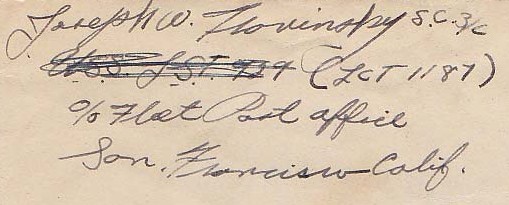 Joseph W. Novinsky S.C. 3/c
U.S.S. L.S.T. 929 (LCT 1187)
c/o Fleet Post office
San. Francisco Calif.